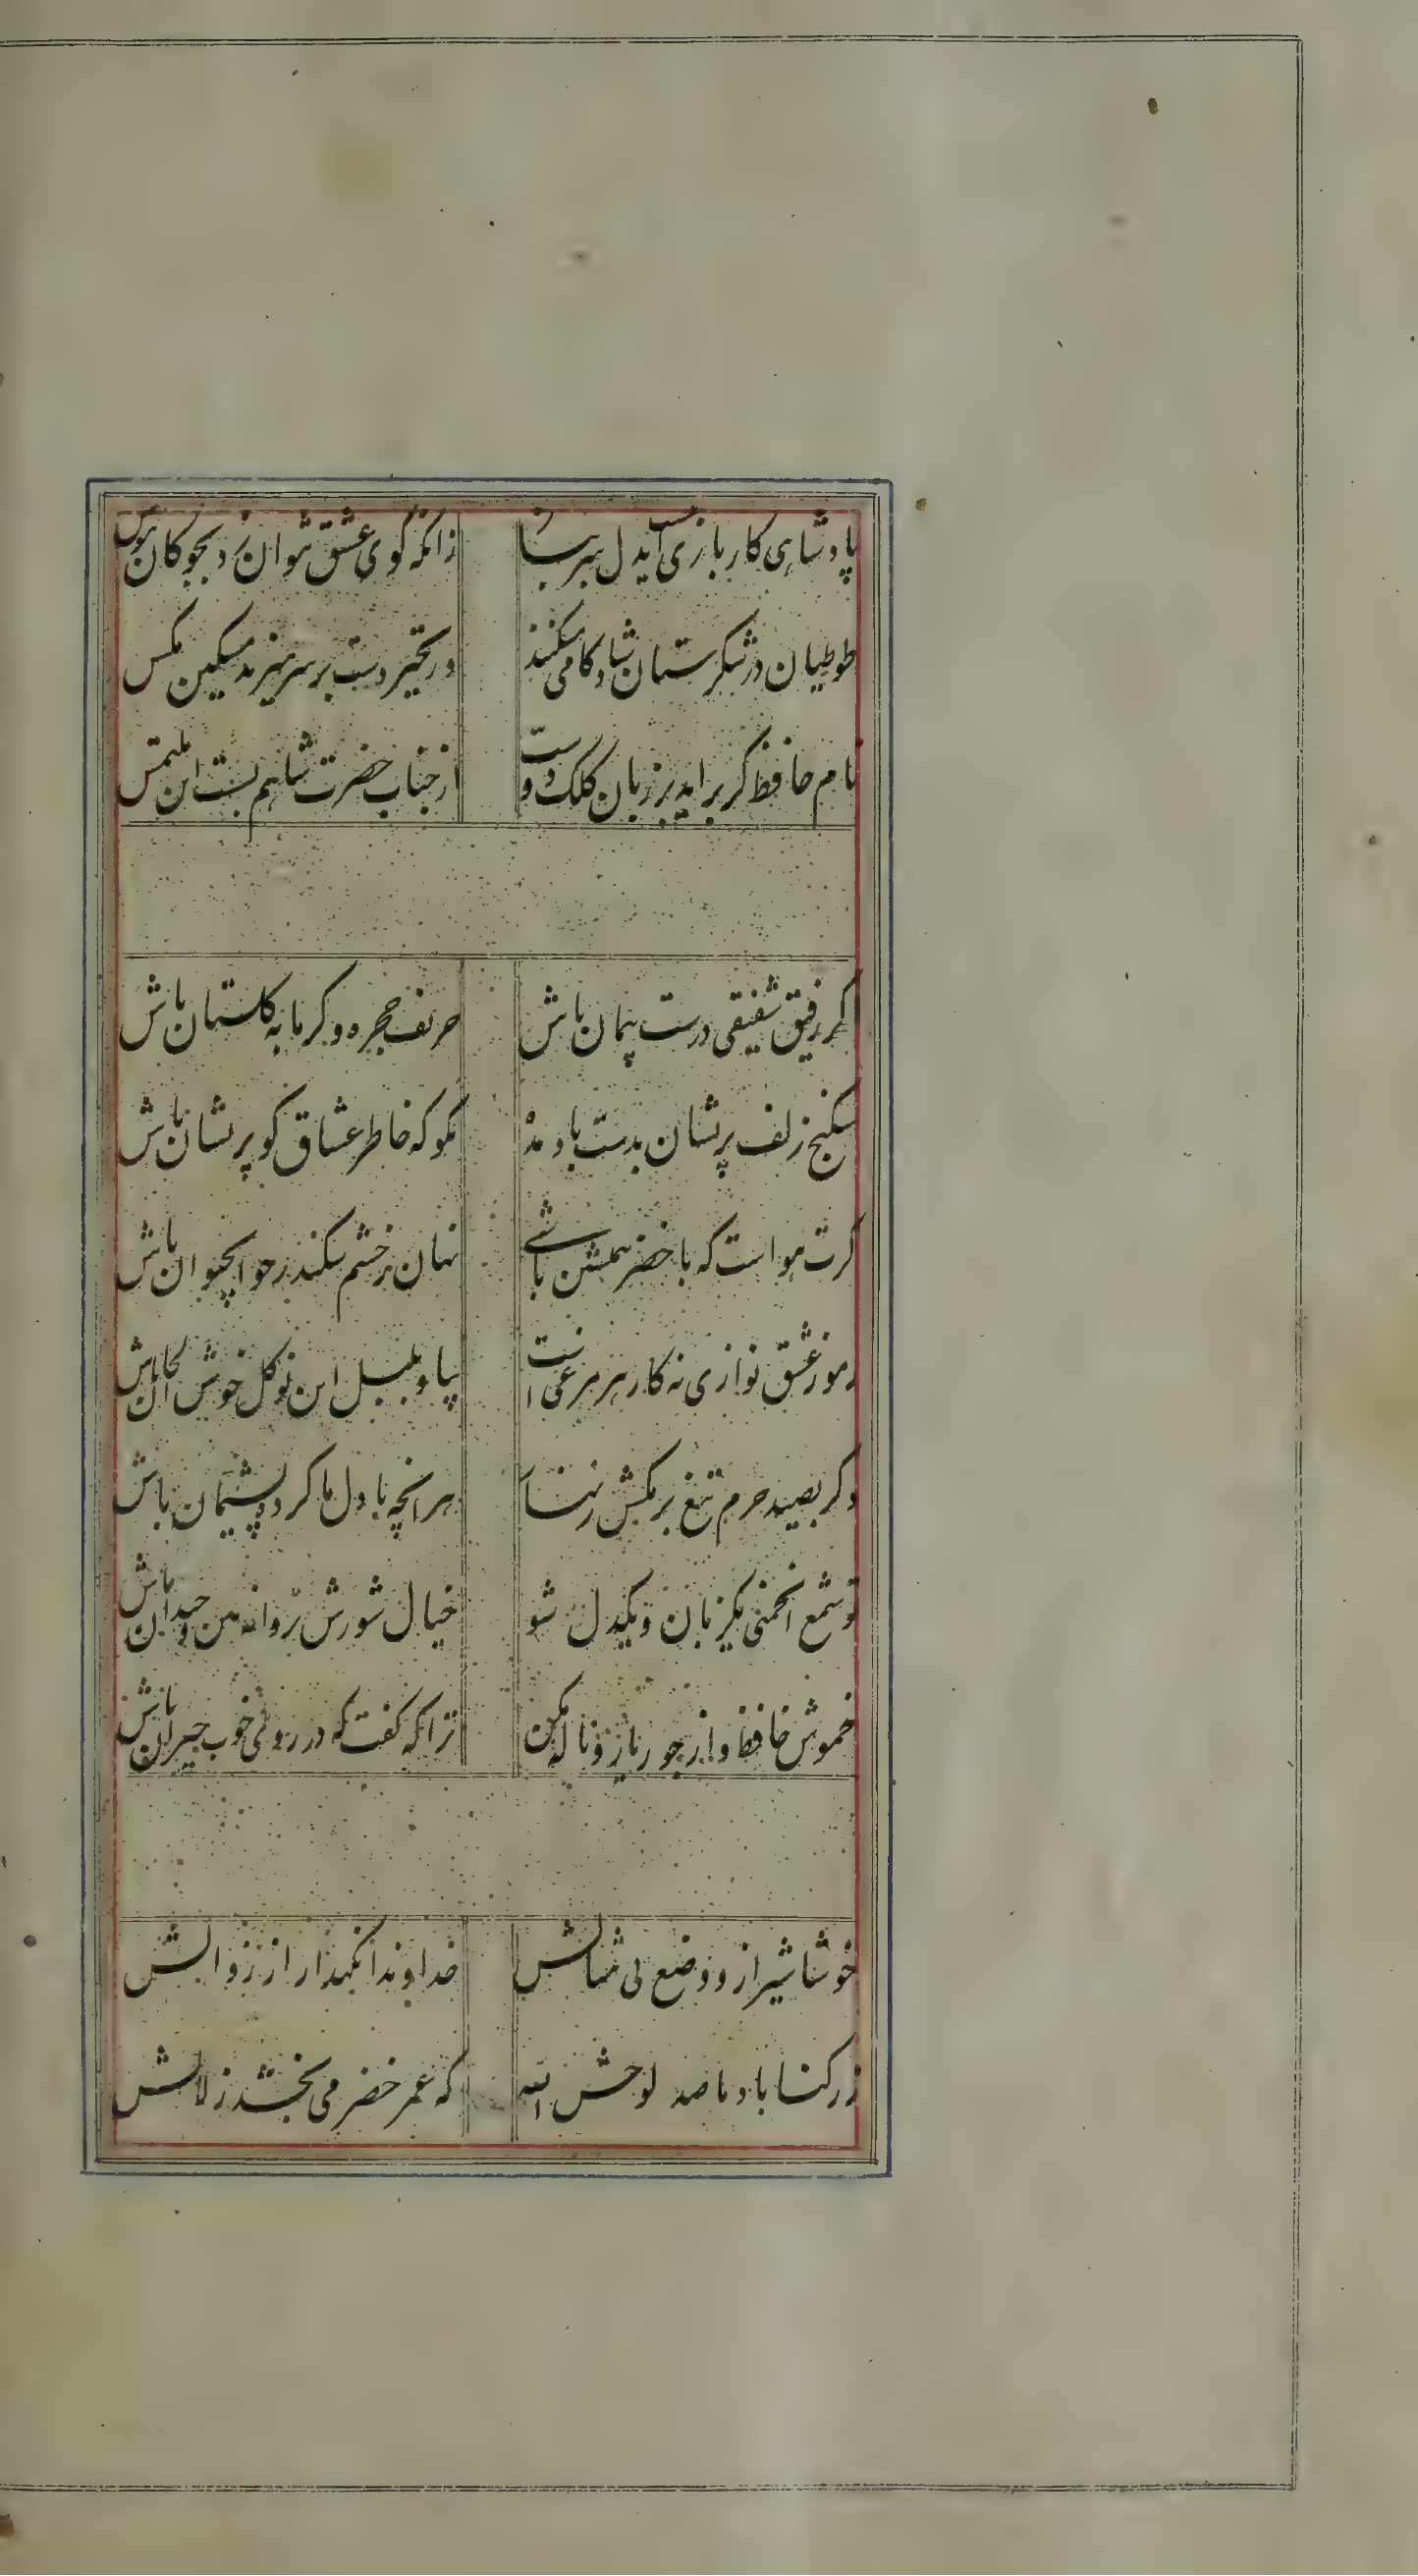 پادشاهی کار بازی نیست ایدل سر بباز زانکه گوی عشق نتوان زد بچوکان هوس
طوطیان در شکرستان شادکامی میکنند در تحیر دست بر سر میزند مسکین مکس
نام حافظ گر براید بر زبان کلک دوست از جناب حضرت شاهم بست این ملتمس
اگر رفیق شفیقی درست پیمان باش حریف حجره و گرمابه و گلستان باش
شکنج زلف پریشان بدست باد مده مگو که خاطر عشاق گو پریشان باش
گرت هواست که با خضر همنشین باشی نهان ز چشم سکندر چو اب حیوان باش
رموز عشق نوازی نه کار هر مرغی است بیا و بلبل این نوگل خوش الحان باش
دگر بصید حرم تیغ برمکش زنهار هرانچه با دل ما کرده پشیمان باش
تو شمع انجمنی یکزبان و یکدل شو خیال شورش پروانه بین و خندان باش
خموش حافظ و از جور یار ناله مکن ترا که گفت که در روی خوب حیران باش
خوشا شیراز و وضع بی مثالش خداوندا نگهدار از زوالش
ز رکناباد ما صد لوحش الله که عمر خضر می بخشد زلالش